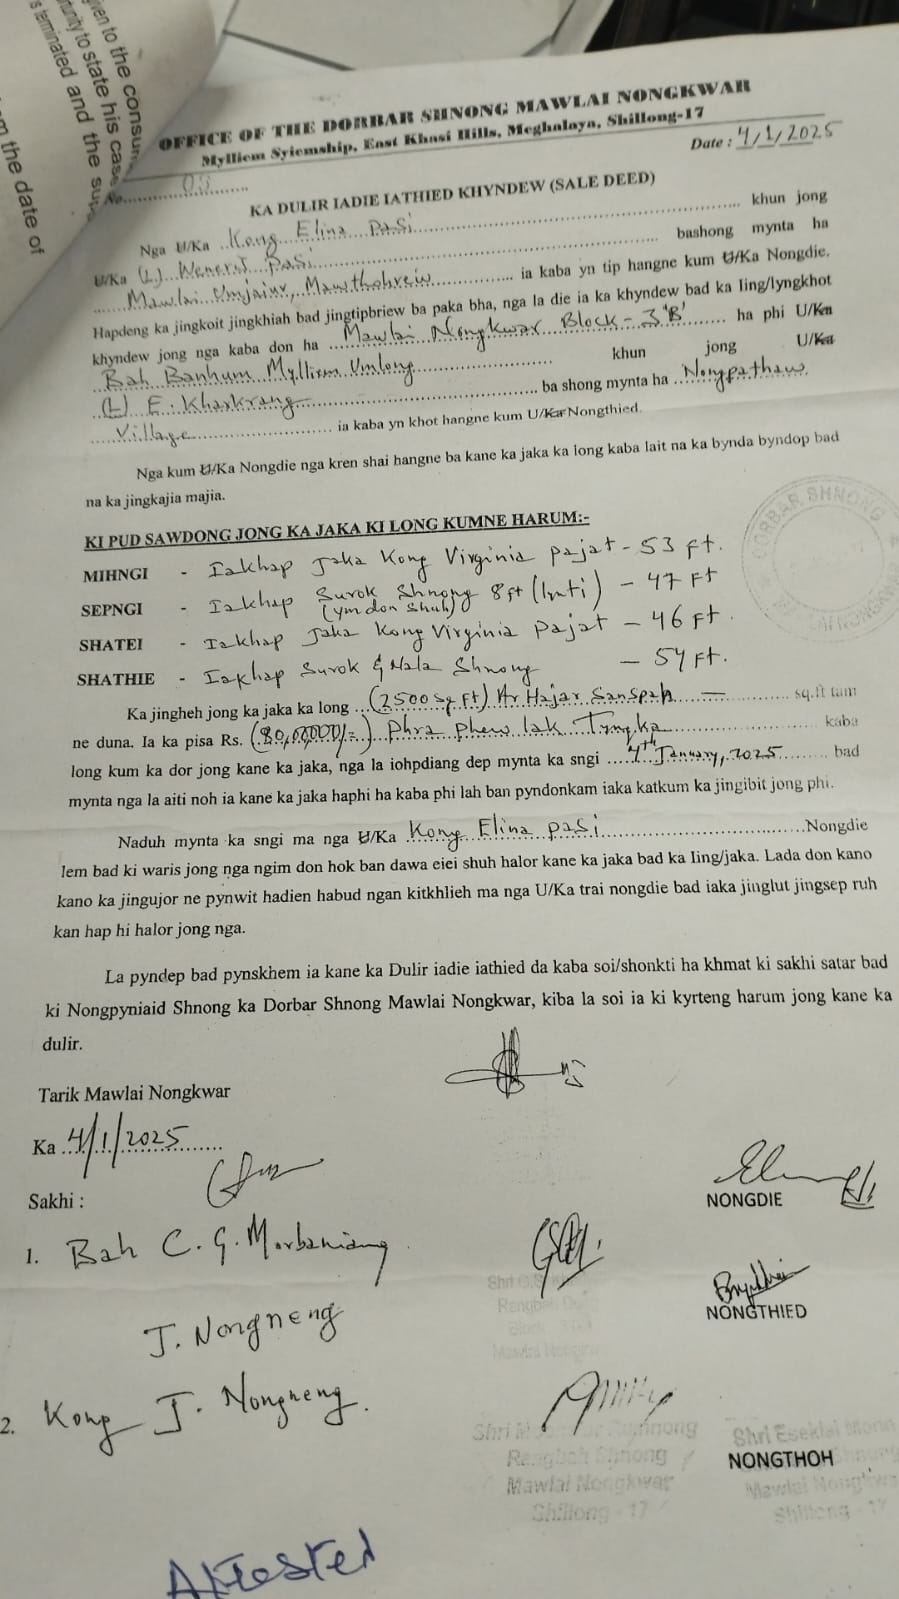 iven to the consum
tunity to state his case
s terminated and the su
m the date of
OFFICE OF THE DORBAR SHNONG MAWLAI NONGKWAR
Mylliem Syiemship, East Khasi Hills, Meghalaya, Shillong-17
Date : 4/1/2025
No. 03
KA DULIR IADIE IATHIED KHYNDEW (SALE DEED)
Nga U/Ka Kong Elina Pasi khun jong
U/Ka (L) Pasi bashong mynta ha
Mawlai Umjaiur, Mawthohrein ia kaba yn tip hangne kum U/Ka Nongdie.
Hapdeng ka jingkoit jingkhiah bad jingtipbriew ba paka bha, nga la die ia ka khyndew bad ka Iing/lyngkhot
khyndew jong nga kaba don ha Mawlai Nongkwar Block - 3 'B' ha phi U/Ka
Bah Banhum Mylliem Umlong khun jong U/Ka
(L) E. Kharkrang ba shong mynta ha Nongpathaw
Village ia kaba yn khot hangne kum U/Ka Nongthied.
Nga kum U/Ka Nongdie nga kren shai hangne ba kane ka jaka ka long kaba lait na ka bynda byndop bad
na ka jingkajia majia.
KI PUD SAWDONG JONG KA JAKA KI LONG KUMNE HARUM:-
MIHNGI - Iakhap Jaka Kong Virginia Pajat - 53 ft.
SEPNGI - Iakhap Surok Shnong 8ft (Inti) - 47 Ft
(ym don shuh)
SHATEI - Iakhap Jaka Kong Virginia Pajat - 46 Ft.
SHATHIE - Iakhap Surok & Nala Shnong - 54 Ft.
Ka jingheh jong ka jaka ka long (2500 Sq Ft) Ar Hajar Sanspah — sq.ft tam
ne duna. Ia ka pisa Rs. (80,00,000/=) Phra phew lak Tyngka kaba
long kum ka dor jong kane ka jaka, nga la iohpdiang dep mynta ka sngi 4th January, 2025 bad
mynta nga la aiti noh ia kane ka jaka haphi ha kaba phi lah ban pyndonkam iaka katkum ka jingibit jong phi.
Naduh mynta ka sngi ma nga U/Ka Kong Elina Pasi Nongdie
lem bad ki waris jong nga ngim don hok ban dawa eiei shuh halor kane ka jaka bad ka Iing/jaka. Lada don kano
kano ka jingujor ne pynwit hadien habud ngan kitkhlieh ma nga U/Ka trai nongdie bad iaka jinglut jingsep ruh
kan hap hi halor jong nga.
La pyndep bad pynskhem ia kane ka Dulir iadie iathied da kaba soi/shonkti ha khmat ki sakhi satar bad
ki Nongpyniaid Shnong ka Dorbar Shnong Mawlai Nongkwar, kiba la soi ia ki kyrteng harum jong kane ka
dulir.
Tarik Mawlai Nongkwar
Ka 4/1/2025
Sakhi :
NONGDIE
1. Bah C. G. Marbaniang
NONGTHIED
J. Nongneng
2. Kong J. Nongneng.
Rangbah Shnong
Mawlai Nongkwar
Shillong - 17
NONGTHOH
Mawlai Nongkwar
Shillong - 17
Attested